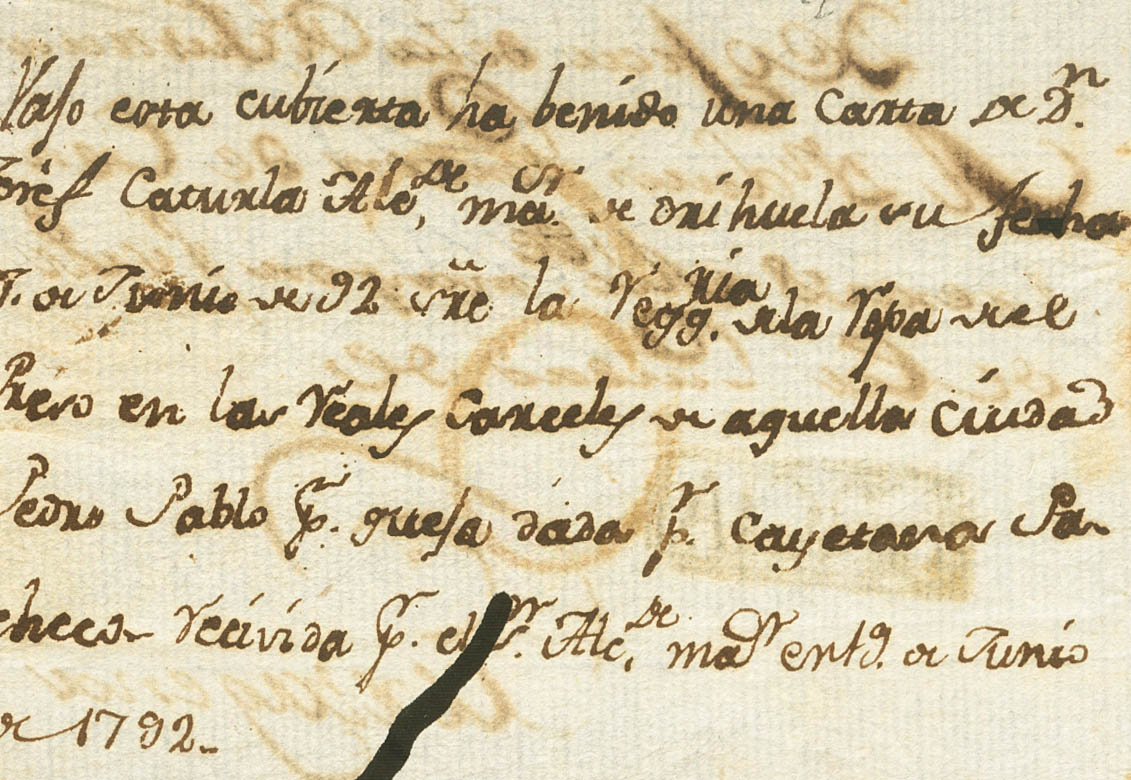 Vajo esta cubierta ha benido una Carta de Dn.
Josef Caturla Alc,de mar. de orihuela su fecha
7. de Junio de 92 sre la Regg.ria de la Ropa del
Preso en las Reales Carceles de aquella Ciudad
Pedro Pablo pr. quesa dada pr. Cayetana Pa-
checo recivida pr. el Sr. Alc,de mar en 19. de Junio
de 1792.